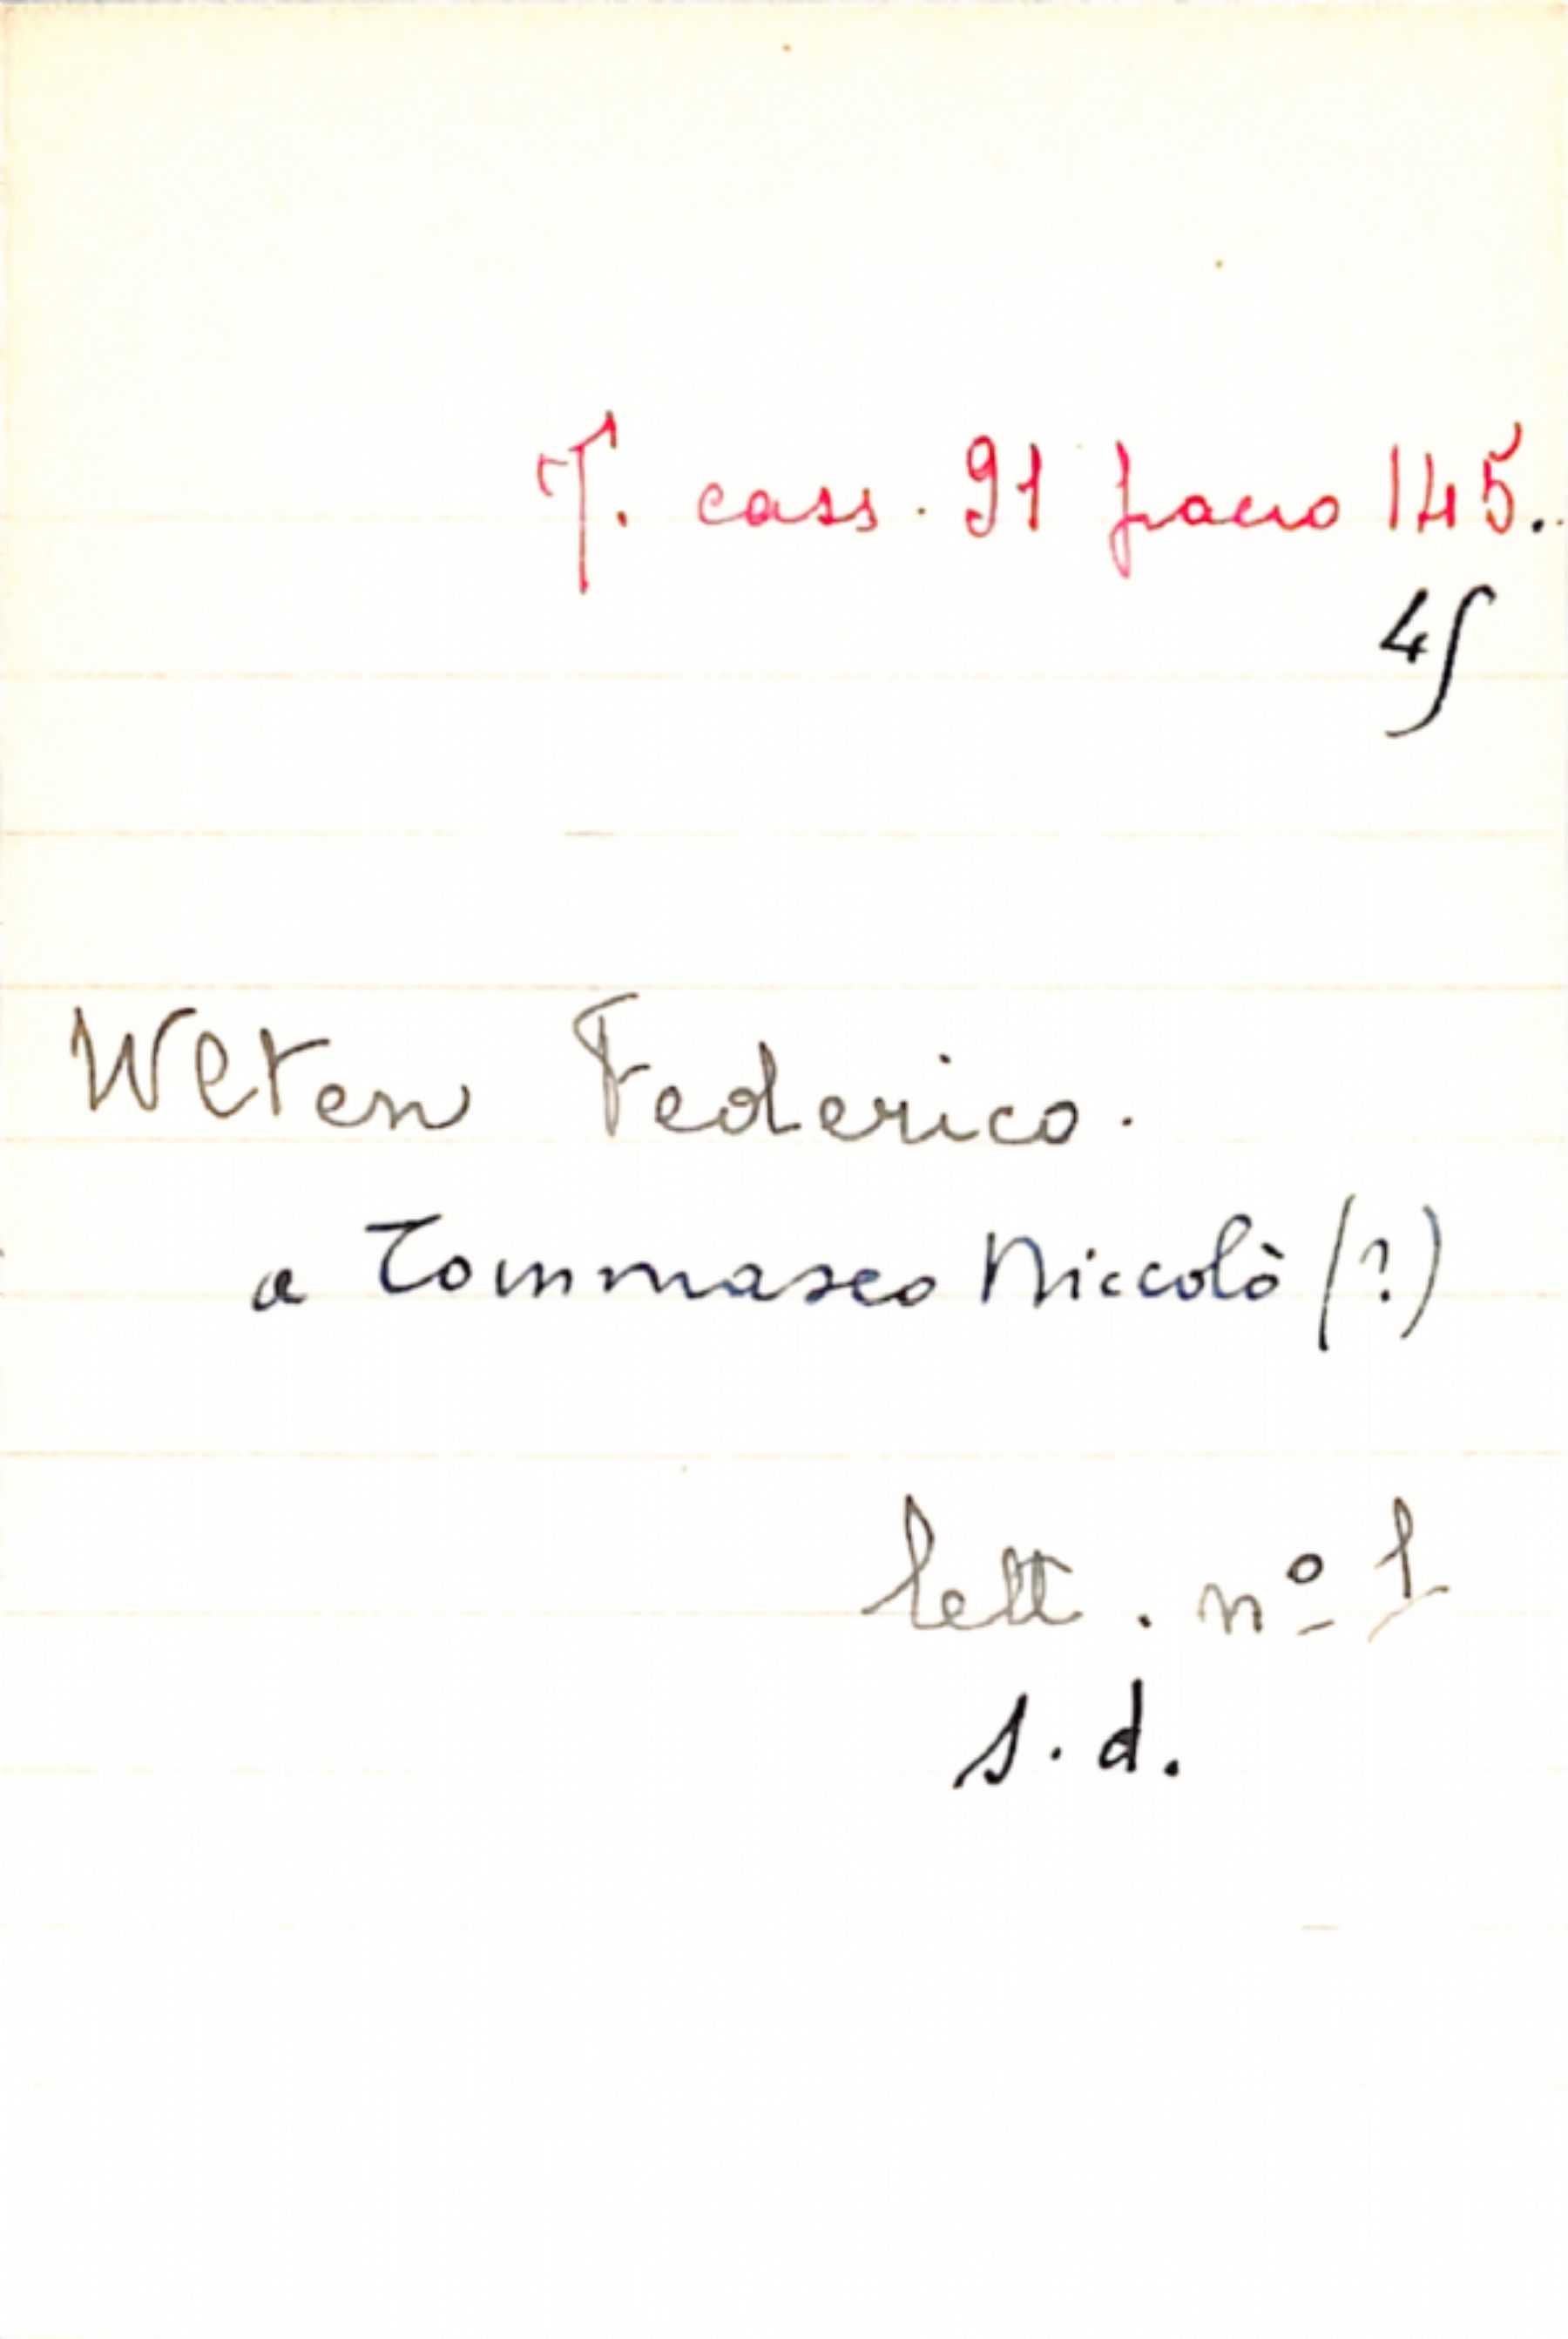 T. cass. 91 pacco 145.
4
Weten Federico.
a Tommaseo Niccolò (?)
lett. nº 1
s. d.